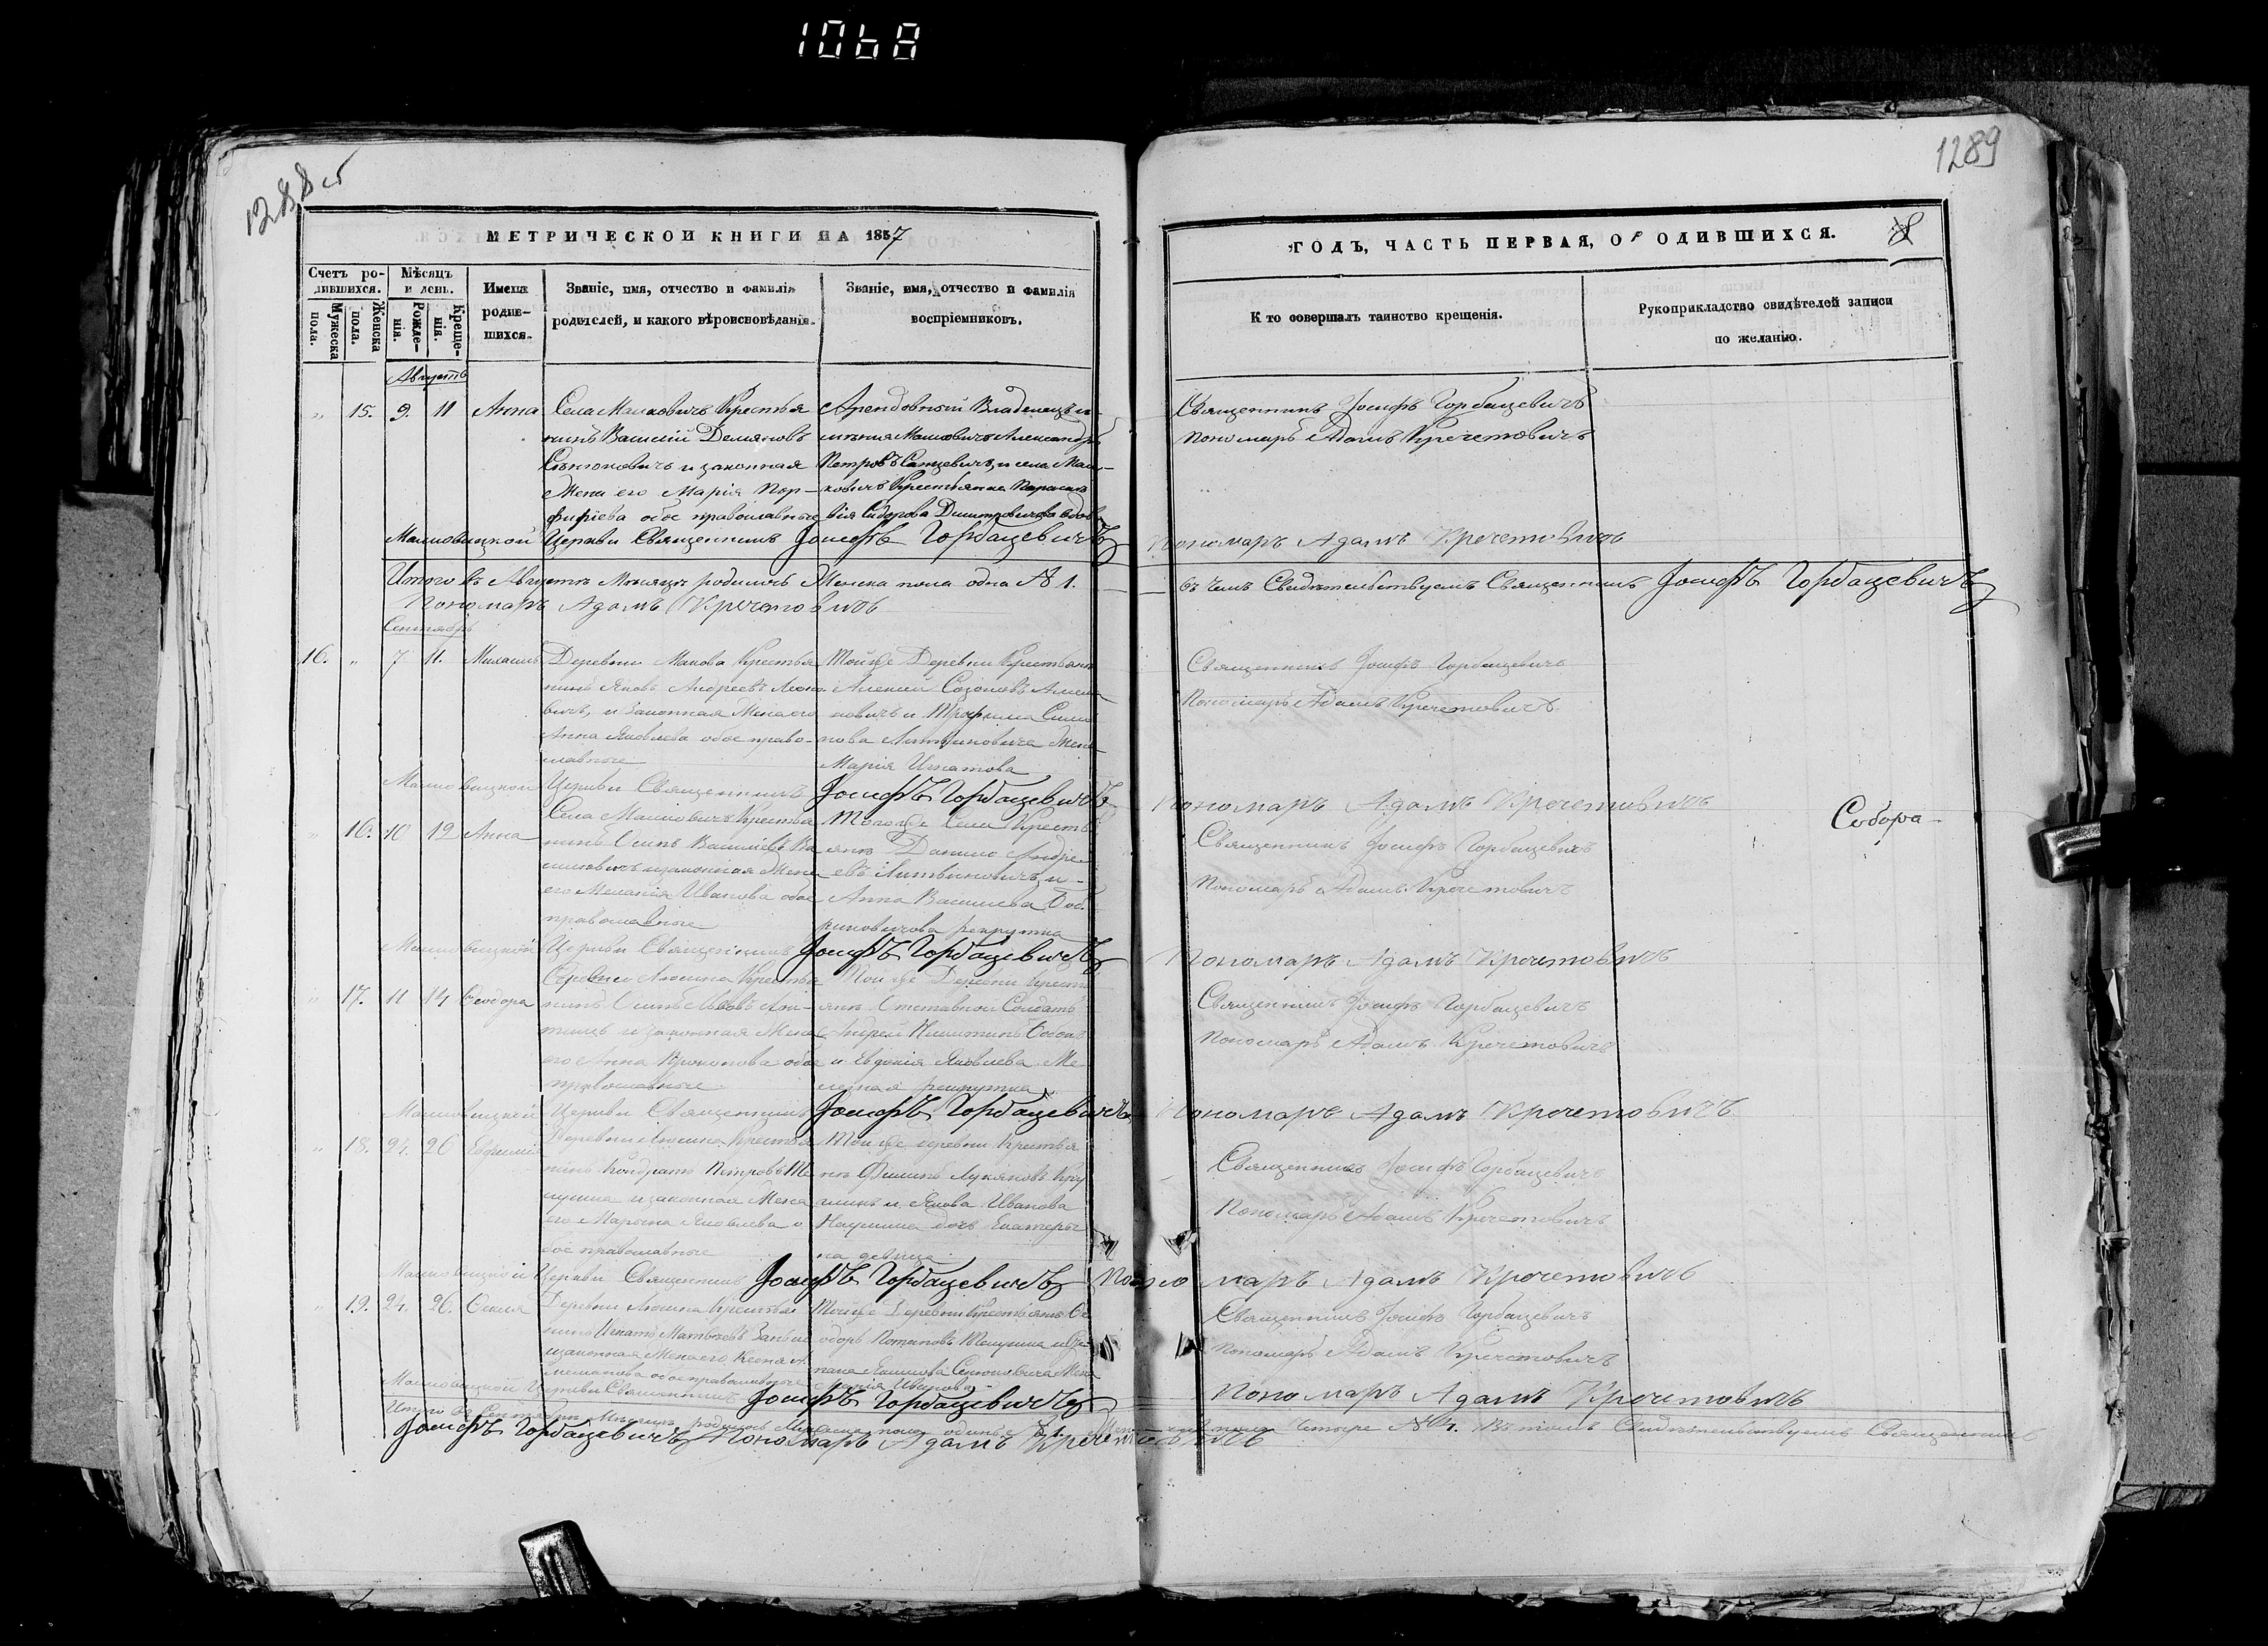 1068
1288 об
1289
МЕТРИЧЕСКОЙ КНИГИ НА 1857
ГОДЪ, ЧАСТЬ ПЕРВАЯ, О РОДИВШИХСЯ.
8
Счетъ родившихся.
Мужеска пола.
Женска пола.
Мѣсяцъ и день.
Рожденія.
Крещенія.
Имена родившихся.
Званіе, имя, отчество и фамилія
родителей, и какого вѣроисповѣданія.
Званіе, имя, отчество и фамилія
воспріемниковъ.
Кто совершалъ таинство крещенія.
Рукоприкладство свидѣтелей записи
по желанію.
Августъ
„ 15. 9. 11 Анна
Села Малковичъ Крестья
нинъ Василій Демяновъ
и законная
Жена его Марія Пор-
фиріева обое православные
Арендовный Владѣлецъ и-
мѣнія Малковичъ Александръ
Петровъ и села Мал-
ковичъ Крестьянка Параске
вія Сидорова Димитровичова вдова
Священникъ Іосифъ Горбацевичъ
Пономарь Адамъ Кречетовичъ
Малковицкой Церкви Священникъ Іосифъ Горбацевичъ
Пономарь Адамъ Кречетовичъ
Итого въ Августѣ Мѣсяцѣ родилось Женска пола одна № 1.
въ чемъ Свидѣтельствуемъ Священникъ Іосифъ Горбацевичъ
Пономарь Адамъ Кречетовичъ
Сентябрь
16. „ 7 11. Михаилъ
Деревни Макова Крестья
нинъ Яковъ Андреевъ Леоно
вичъ, и Законная Жена его
Анна Яковлева обое право-
славные
Тойже Деревни Крестьян
Алексей Созоновъ
новичъ и Трофима Симо
нова Литвиновича Жена
Марія Игнатова
Священникъ Іосифъ Горбацевичъ
Пономарь Адамъ Кречетовичъ
Малковицкой Церкви Священникъ Іосифъ Горбацевичъ
Пономарь Адамъ Кречетовичъ
„ 16. 10 12 Анна
Села Малковичъ Крестья
нинъ Осипъ Василіевъ Ва
силевичъ и законная Жена
его Меланія Иванова обое
православные
Тогоже Села Кресть
янъ Данило Андре
евъ Литвиновичъ, и
Анна Василіева
рекрутка
Священникъ Іосифъ Горбацевичъ
Пономарь Адамъ Кречетовичъ
Собора
Малковицкой Церкви Священникъ Іосифъ Горбацевичъ
Пономарь Адамъ Кречетовичъ
„ 17. 11 14 Ѳеодора
Деревни Люшка Крестья
нинъ Осипъ
и законная Жена
его Анна обое
православные
Тойже Деревни Кресть
янъ Отставной Солдатъ
Андрей Никитинъ
и Евдокія Яковлева
рекрутка
Священникъ Іосифъ Горбацевичъ
Пономарь Адамъ Кречетовичъ
Малковицкой Церкви Священникъ Іосифъ Горбацевичъ
Пономарь Адамъ Кречетовичъ
„ 18. 24. 26 Евфимія
Деревни Люшка Крестья
нинъ Кондратъ Петровъ
и законная Жена
его Марина Яковлева о
бое православные
Тойже деревни Крестья
нъ Филипъ Лукяновъ
и Якова Иванова
дочь Екатери
на девица
Священникъ Іосифъ Горбацевичъ
Пономарь Адамъ Кречетовичъ
Малковицкой Церкви Священникъ Іосифъ Горбацевичъ Пономарь Адамъ Кречетовичъ
„ 19. 24. 26.
Деревни Люшка Крестья
нинъ Игнатъ Матвѣевъ
и законная Жена его Ксенія
обое православные
Тойже Деревни Крестьянъ Ѳе
одоръ
Жена
Священникъ Іосифъ Горбацевичъ
Пономарь Адамъ Кречетовичъ
Малковицкой Церкви Священникъ Іосифъ Горбацевичъ
Пономарь Адамъ Кречетовичъ
Итого въ Сентябрѣ Мѣсяцѣ родилось Мужеска пола одинъ № 1. Женска пола четыре № 4. Въ томъ Свидѣтельствуемъ Священникъ
Іосифъ Горбацевичъ Пономарь Адамъ Кречетовичъ